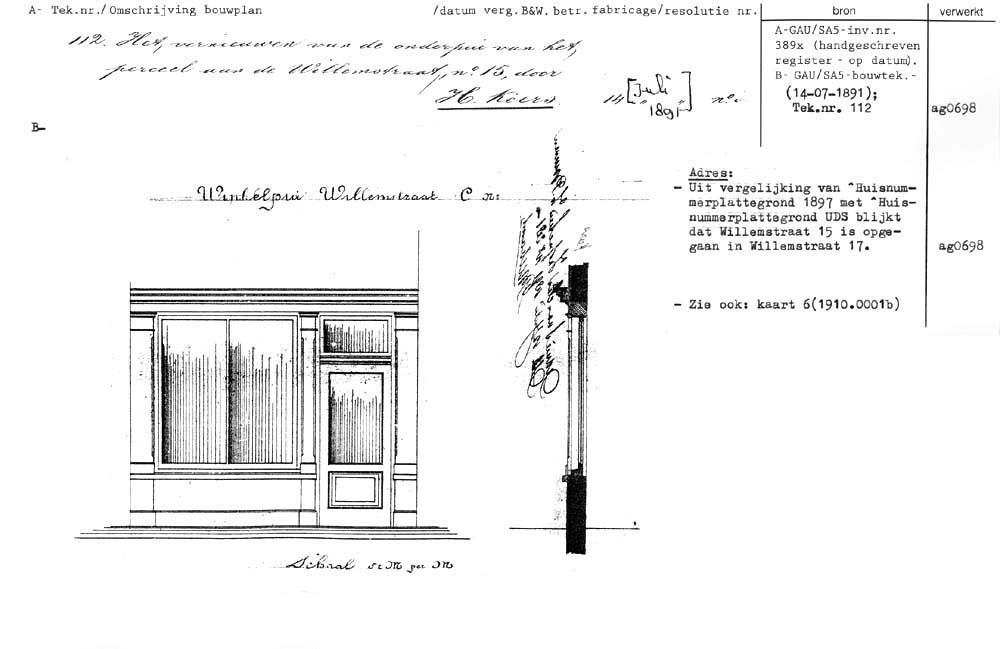 A- Tek.nr./Omschrijving bouwplan
/datum verg.B&W. betr. fabricage/resolutie nr.
bron
verwerkt
112. Het, vernieuwen van de onderpui van het,
perceel aan de Willemstraat, no. 15, door
H. Keers.
14 [Juli 1891]
A-GAU/SA5-inv.nr.
389x (handgeschreven
register - op datum).
B- GAU/SA5-bouwtek.-
(14-07-1891);
Tek.nr. 112
ag0698
B-
Winkelpui Willemstraat C n:
Adres:
- Uit vergelijking van ^Huisnum-
merplattegrond 1897 met ^Huis-
nummerplattegrond UDS blijkt
dat Willemstraat 15 is opge-
gaan in Willemstraat 17.
ag0698
- Zie ook: kaart 6(1910.0001b)
Schaal M per M